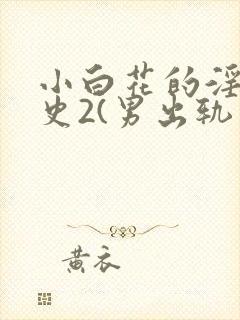 小白花的淫
史2(男出轨
黄衣